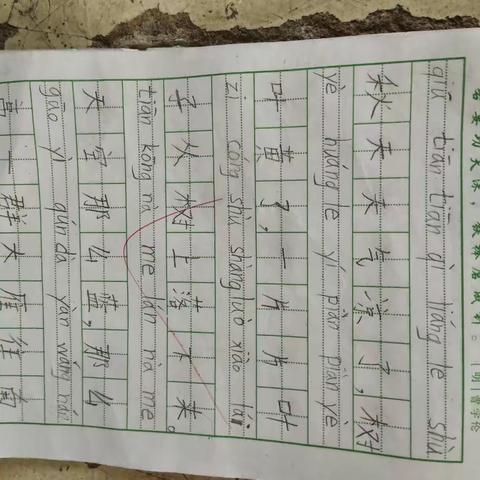 要功夫深，铁杵磨成针。 [明]曹学佺
qiū tiān tiān qì liáng le shù
秋天天气凉了,树
yè huáng le yí piàn piàn yè
叶黄了,一片片叶
zi cóng shù shàng luò xiào lái
子从树上落下来。
tiān kōng nà me lán nà me
天空那么蓝,那么
gāo yì qún dà yàn wǎng nán
高一群大雁往南